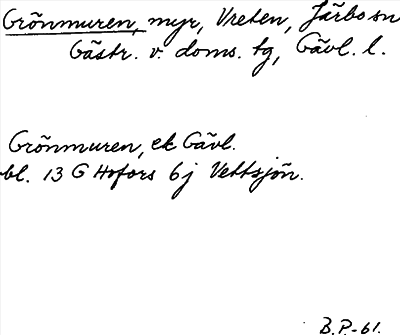 Grönmuren, myr, Vreten, Järbo sn
Gästr. v. doms. tg, Gävl. l.
Grönmuren, ek Gävl.
bl. 13 G Hofors 6j Vettsjön.
B.P.-61.